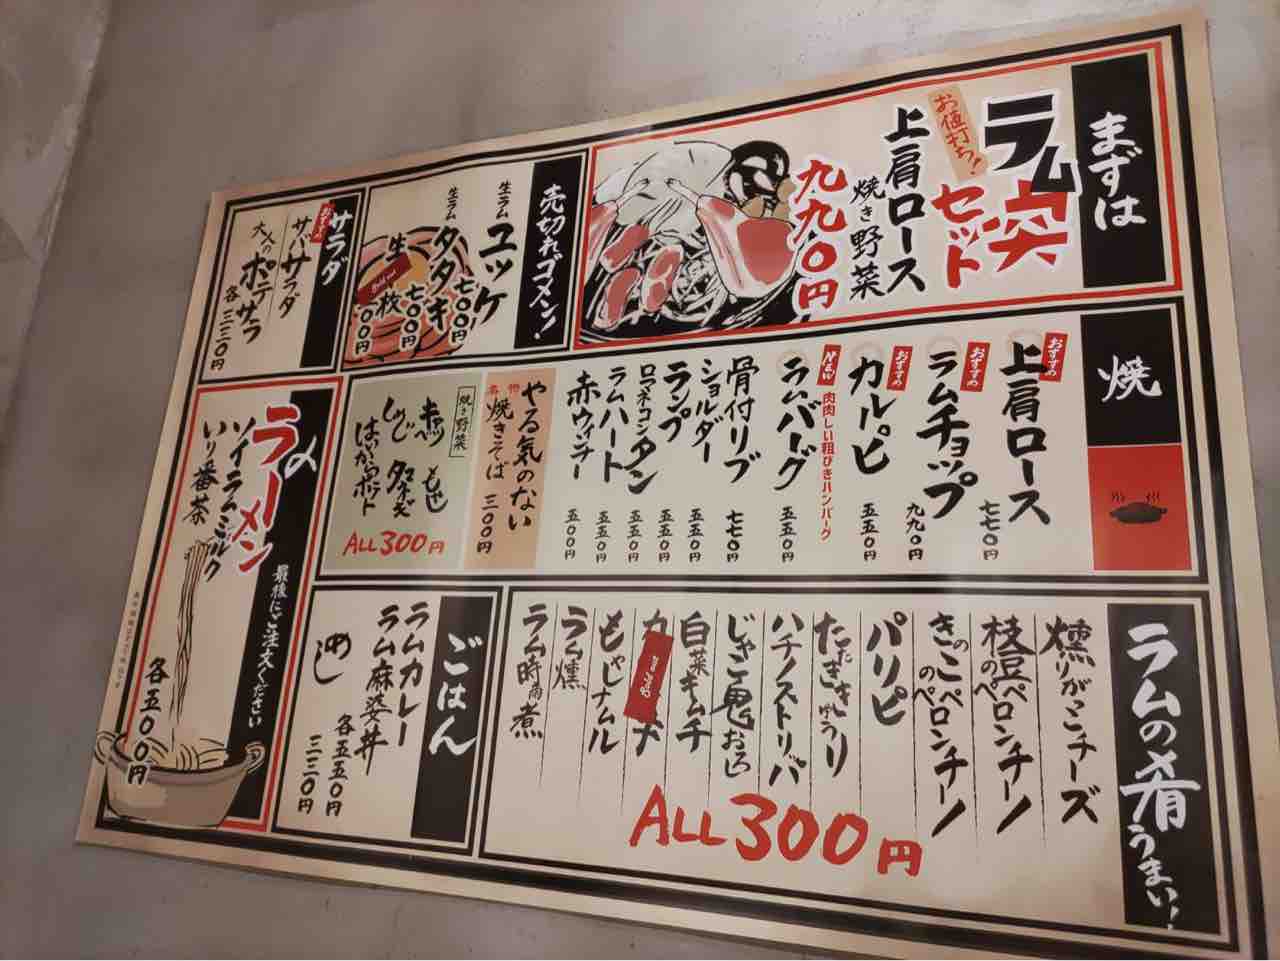 まずは
ラム突
セット
お値打ち!
上肩ロース
焼き野菜
九九〇円
売切れゴメン!
生ラム ユッケ 七〇〇円
生ラム タタキ 七〇〇円
Sold out
サラダ
おすすめ
サバサラダ
大人のポテサラ
各三三〇円
焼
おすすめ
上肩ロース 七七〇円
おすすめ
ラムチョップ 九九〇円
おすすめ
カルピ 五五〇円
NEW 肉肉しい粗びきハンバーグ
ラムバーグ 五五〇円
骨付リブ 七七〇円
ショルダー 五五〇円
ランプ 五五〇円
ロマネコンタン 五五〇円
ラムハート 五五〇円
赤ウィンナー 五〇〇円
やる気のない
名物 焼きそば 三〇〇円
焼き野菜
キャベツ もやし
しめじ タマネギ
ALL 300円
ラムの肴 うまい!
燻りがっことチーズ
枝豆のペペロンチーノ
きのこのペペロンチーノ
パリピ
たたききゅうり
ハチノストリッパ
じゃこ鬼おろし
白菜キムチ
Sold out
もやしナムル
ラム燻
ラム時雨煮
ALL 300円
ごはん
ラムカレー
ラム麻婆丼
各五五〇円
めし 三三〇円
〆の
ラーメン
最後にご注文ください
ソイラムミルク
いり番茶
各五〇〇円